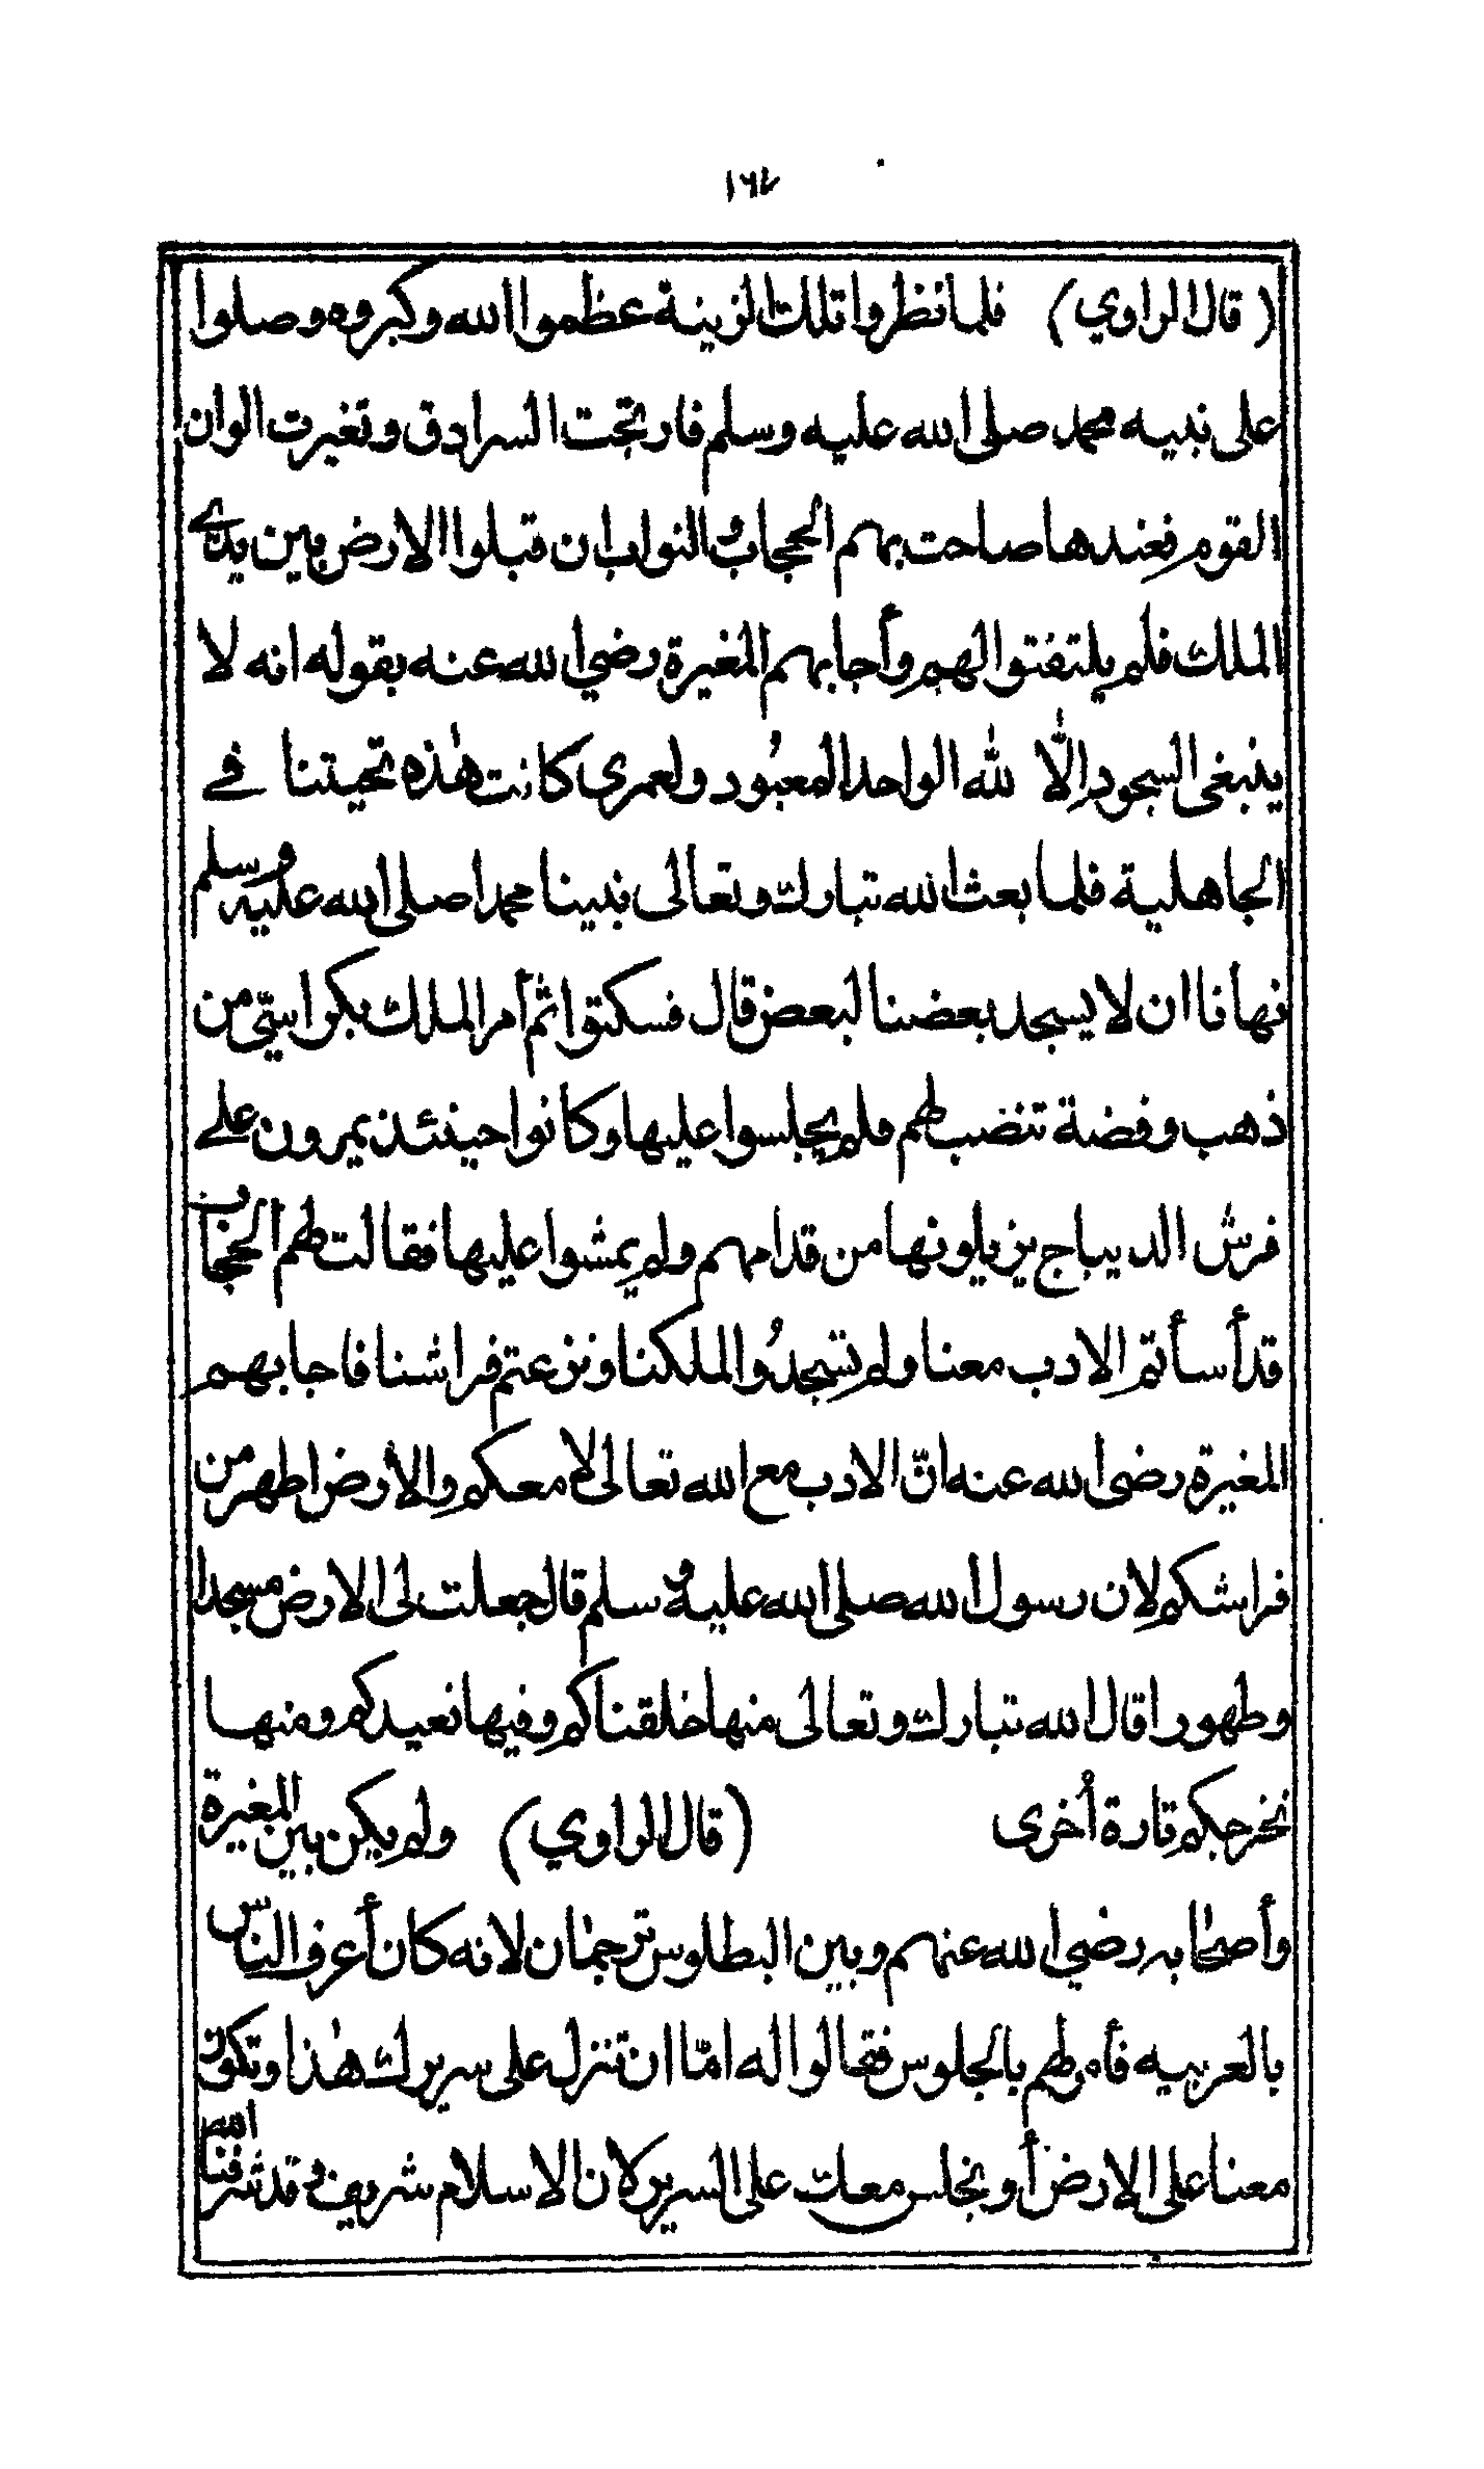 ١٦٧
(قال الراوي) فلما نظروا تلك الزينة عظموا الله وكبروه وصلوا
على نبيه محمد صلى الله عليه وسلم فارتجت السرادق وتغيرت الوان
القوم فعندها صاحت بهم الحجاب والنواب ان قبلوا الارض بين يدي
الملك فلم يلتفتوا الهم وأجابهم المغيرة رضي الله عنه بقوله انه لا
ينبغى السجود إلّا لله الواحد المعبُود ولعمرى كانت هٰذه تحيتنا في
الجاهلية فلما بعث الله تبارك وتعالى نبينا محمدا صلى الله عليه وسلم
نهانا ان لا يسجد بعضنا لبعض قال فسكتوا ثم أمر الملك بكراسيّ من
ذهب وفضة تنضب لهم فلم يجلسوا عليها وكانوا حينئذ يمرون على
فرش الديباج يزيلونها من قدامهم ولم يمشوا عليها فقالت لهم الحجاب
قد أسأتم الادب معنا ولم تسجدُوا لملكنا ونزعتم فراشنا فاجابهم
المغيرة رضى الله عنه انّ الادب مع الله تعالى لا معكم والأرض اطهر من
فراشكم لان رسول الله صلى الله عليه وسلم قال جعلت لى الارض مسجدا
وطهورا قال الله تبارك وتعالى منها خلقناكم وفيها نعيدكم ومنها
نخرجكم تارة أخرى (قال الراوي) ولم يكن بين المغيرة
وأصحابه رضي الله عنهم وبين البطلوس ترجمان لانه كان أعرف الناس
بالعربيه فأمر لهم بالجلوس فقالوا له امّا ان تنزل على سريرك هٰذا وتكون
معنا على الارض أو نجلس معك على السرير لان الاسلام شريف وقد شرفنا الله